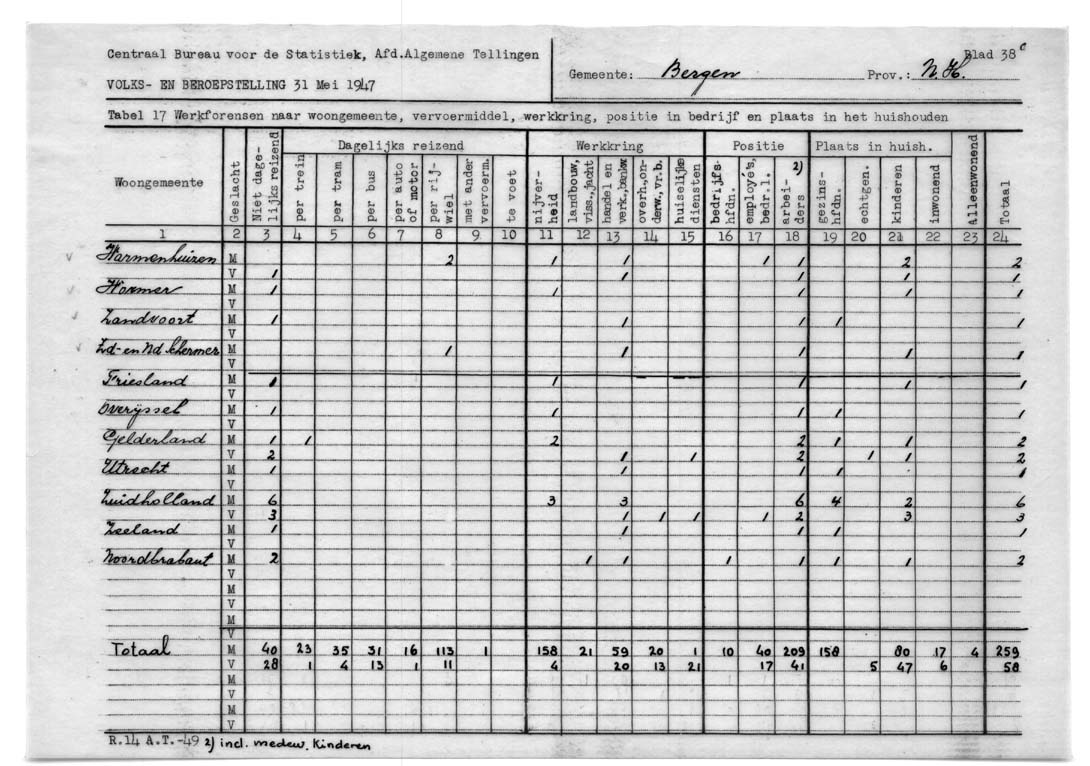 Centraal Bureau voor de Statistiek, Afd.Algemene Tellingen
VOLKS- EN BEROEPSTELLING 31 Mei 1947
Gemeente: Bergen Prov.: N.H. Blad 38c
Tabel 17 Werkforensen naar woongemeente, vervoermiddel, werkkring, positie in bedrijf en plaats in het huishouden
Woongemeente Geslacht Niet dage-lijks reizend Dagelijks reizend Werkkring Positie Plaats in huish. Alleenwonend Totaal
per trein per tram per bus per auto of motor per rij-wiel met ander vervoerm. te voet nijver-heid landbouw, viss.,jacht handel en verk.,bankw overh.,on-derw.,vr.b. huiselijke diensten bedrijfs-hfdn. employé's, bedr.l. arbei-ders 2) gezins-hfdn. echtgen. kinderen inwonend
1 2 3 4 5 6 7 8 9 10 11 12 13 14 15 16 17 18 19 20 21 22 23 24
v Harmenhuizen M 2 1 1 1 1 2 2
V 1 1 1 1 1
v Wormer M 1 1 1 1 1
V
v Zandvoort M 1 1 1 1 1
V
v Zd- en Nd Schermer M 1 1 1 1 1
V
Friesland M 1 1 1 1 1
V
Overijssel M 1 1 1 1 1
V
Gelderland M 1 1 2 2 1 1 2
V 2 1 1 2 1 1 2
Utrecht M 1 1 1 1 1
V
Zuidholland M 6 3 3 6 4 2 6
V 3 1 1 1 1 2 3 3
Zeeland M 1 1 1 1 1
V
Noordbrabant M 2 1 1 1 1 1 1 2
V
M
V
M
V
M
V
Totaal M 40 23 35 31 16 113 1 158 21 59 20 1 10 40 209 158 80 17 4 259
V 28 1 4 13 1 11 4 20 13 21 17 41 5 47 6 58
M
V
M
V
R.14 A.T.-49 2) incl. medew. Kinderen